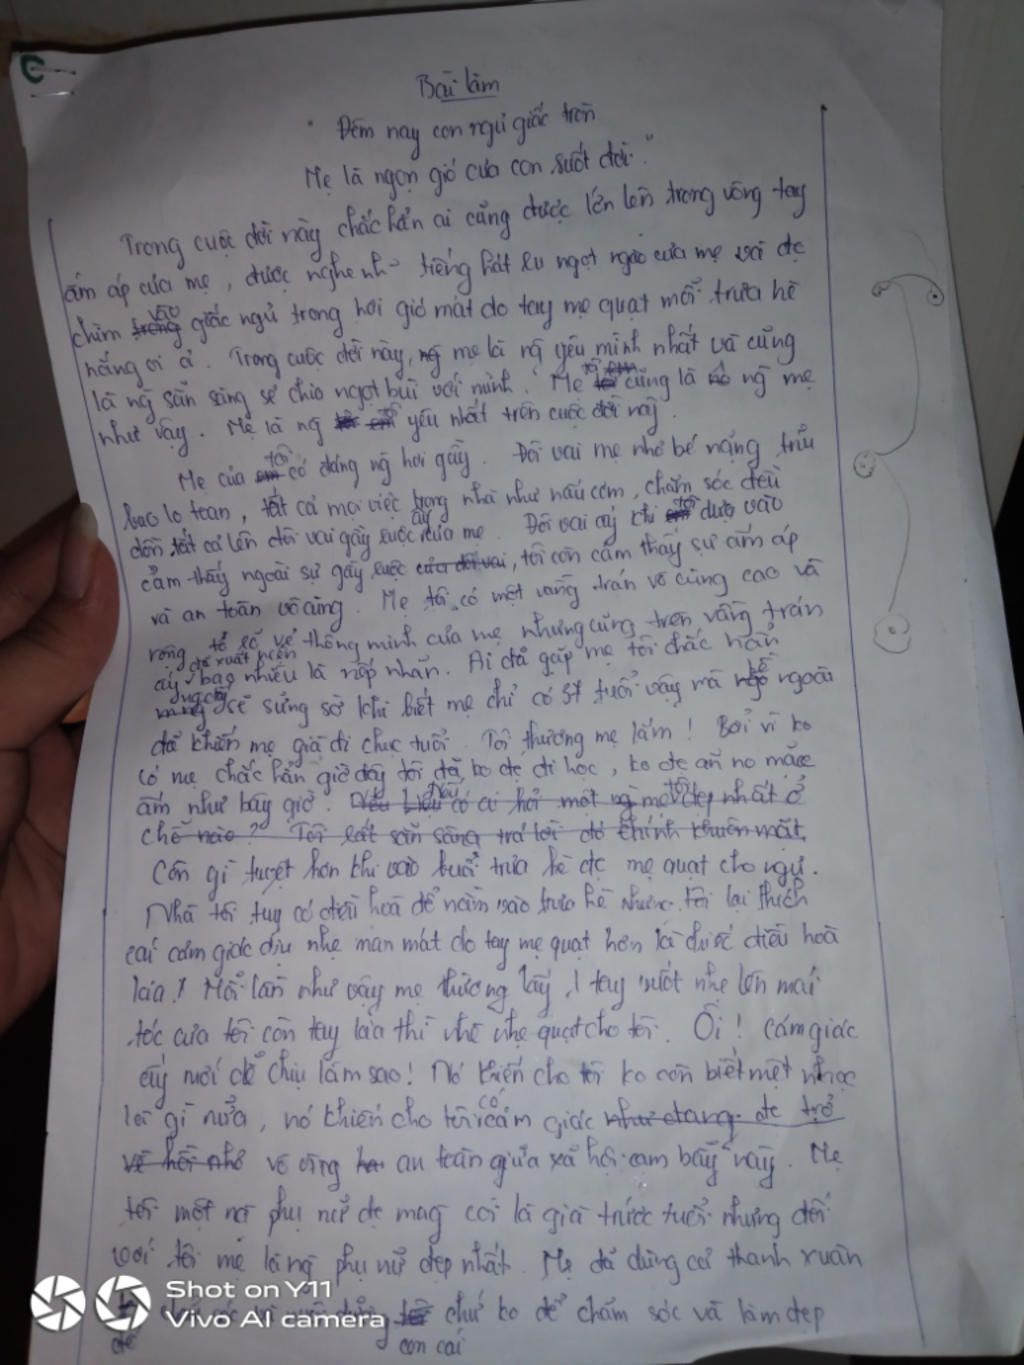 Bài làm
" Đêm nay con ngủ giấc tròn
Mẹ là ngọn gió của con suốt đời "
Trong cuộc đời này chắc hẳn ai cũng được lớn lên trong vòng tay
ấm áp của mẹ, được nghe những tiếng hát ru ngọt ngào của mẹ và đc
chìm vào giấc ngủ trong hơi gió mát do tay mẹ quạt mỗi trưa hè
nắng oi ả. Trong cuộc đời này, mẹ là ng yêu mình nhất và cũng
là ng sẵn sàng sẻ chia ngọt bùi với mình. Mẹ tôi cũng là ng mẹ
như vậy. Mẹ là ng tôi yêu nhất trên cuộc đời này.
Mẹ của tôi có dáng ng hơi gầy. Đôi vai mẹ nhỏ bé nặng trĩu
bao lo toan, tất cả mọi việc trong nhà như nấu cơm, chăm sóc đều
dồn tất cả lên đôi vai gầy của mẹ. Đôi vai ấy khi tôi dựa vào
cảm thấy ngoài sự gầy, tôi còn cảm thấy sự ấm áp
và an toàn vô cùng. Mẹ tôi có một vầng trán vô cùng cao và
rộng tô rõ vẻ thông minh của mẹ nhưng cũng trên vầng trán
ấy đã xuất hiện bao nhiêu là nếp nhăn. Ai đã gặp mẹ tôi chắc hẳn
ng sẽ sửng sờ khi biết mẹ chỉ có 37 tuổi vậy mà bề ngoài
đã khiến mẹ già đi chục tuổi. Tôi thương mẹ lắm! Bởi vì ko
có mẹ chắc hẳn giờ đây tôi đã ko đc đi học, ko đc ăn no mặc
ấm như bây giờ. Nếu có ai hỏi một ng mẹ đẹp nhất ở
chỗ nào? Tôi rất sẵn sàng trả lời đó chính khuôn mặt.
Còn gì tuyệt hơn khi vào buổi trưa hè đc mẹ quạt cho ngủ.
Nhà tôi tuy có điều hoà để nằm vào trưa hè nhưng tôi lại thích
cái cảm giác dịu nhẹ man mát do tay mẹ quạt hơn là dưới điều hoà
kia! Mỗi lần như vậy mẹ thường lấy 1 tay vuốt nhẹ lên mái
tóc của tôi còn tay kia thì nhè nhẹ quạt cho tôi. Ôi! Cảm giác
ấy mới dễ chịu làm sao! Nó khiến cho tôi ko còn biết mệt nhọc
là gì nữa, nó khiến cho tôi có cảm giác như đang đc trở
về hồi nhỏ vô cùng an toàn giữa xã hội cạm bẫy này. Mẹ
tôi một ng phụ nữ đc mng coi là già trước tuổi nhưng đối
với tôi mẹ là ng phụ nữ đẹp nhất. Mẹ đã dùng cả thanh xuân
để con cái chứ ko để chăm sóc và làm đẹp
Shot on Y11
Vivo AI camera